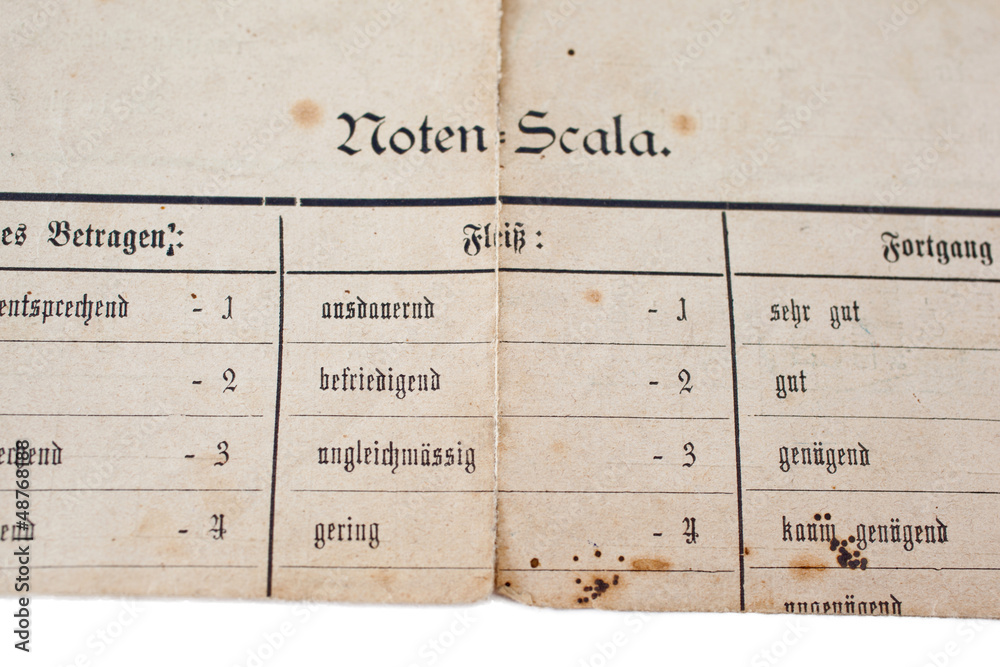 Noten-Scala.
es Betragen: Fleiß: Fortgang
entsprechend - 1 ausdauernd - 1 sehr gut
- 2 befriedigend - 2 gut
echend - 3 ungleichmässig - 3 genügend
end - 4 gering - 4 kaum genügend
ungenügend
Adobe Stock